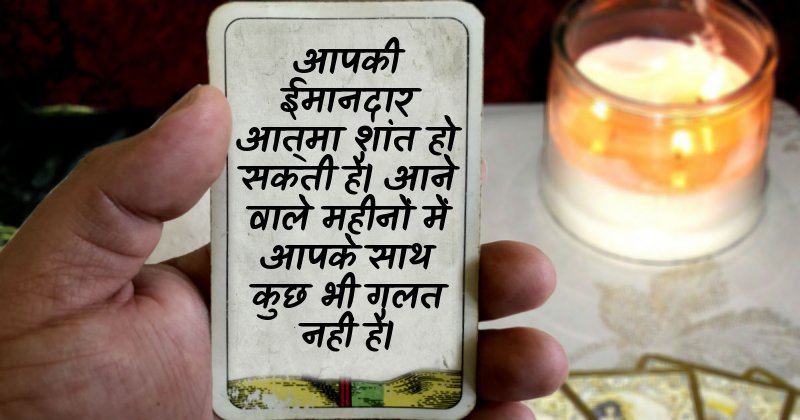 आपकी
ईमानदार
आत्मा शांत हो
सकती है। आने
वाले महीनों में
आपके साथ
कुछ भी गलत
नही है।